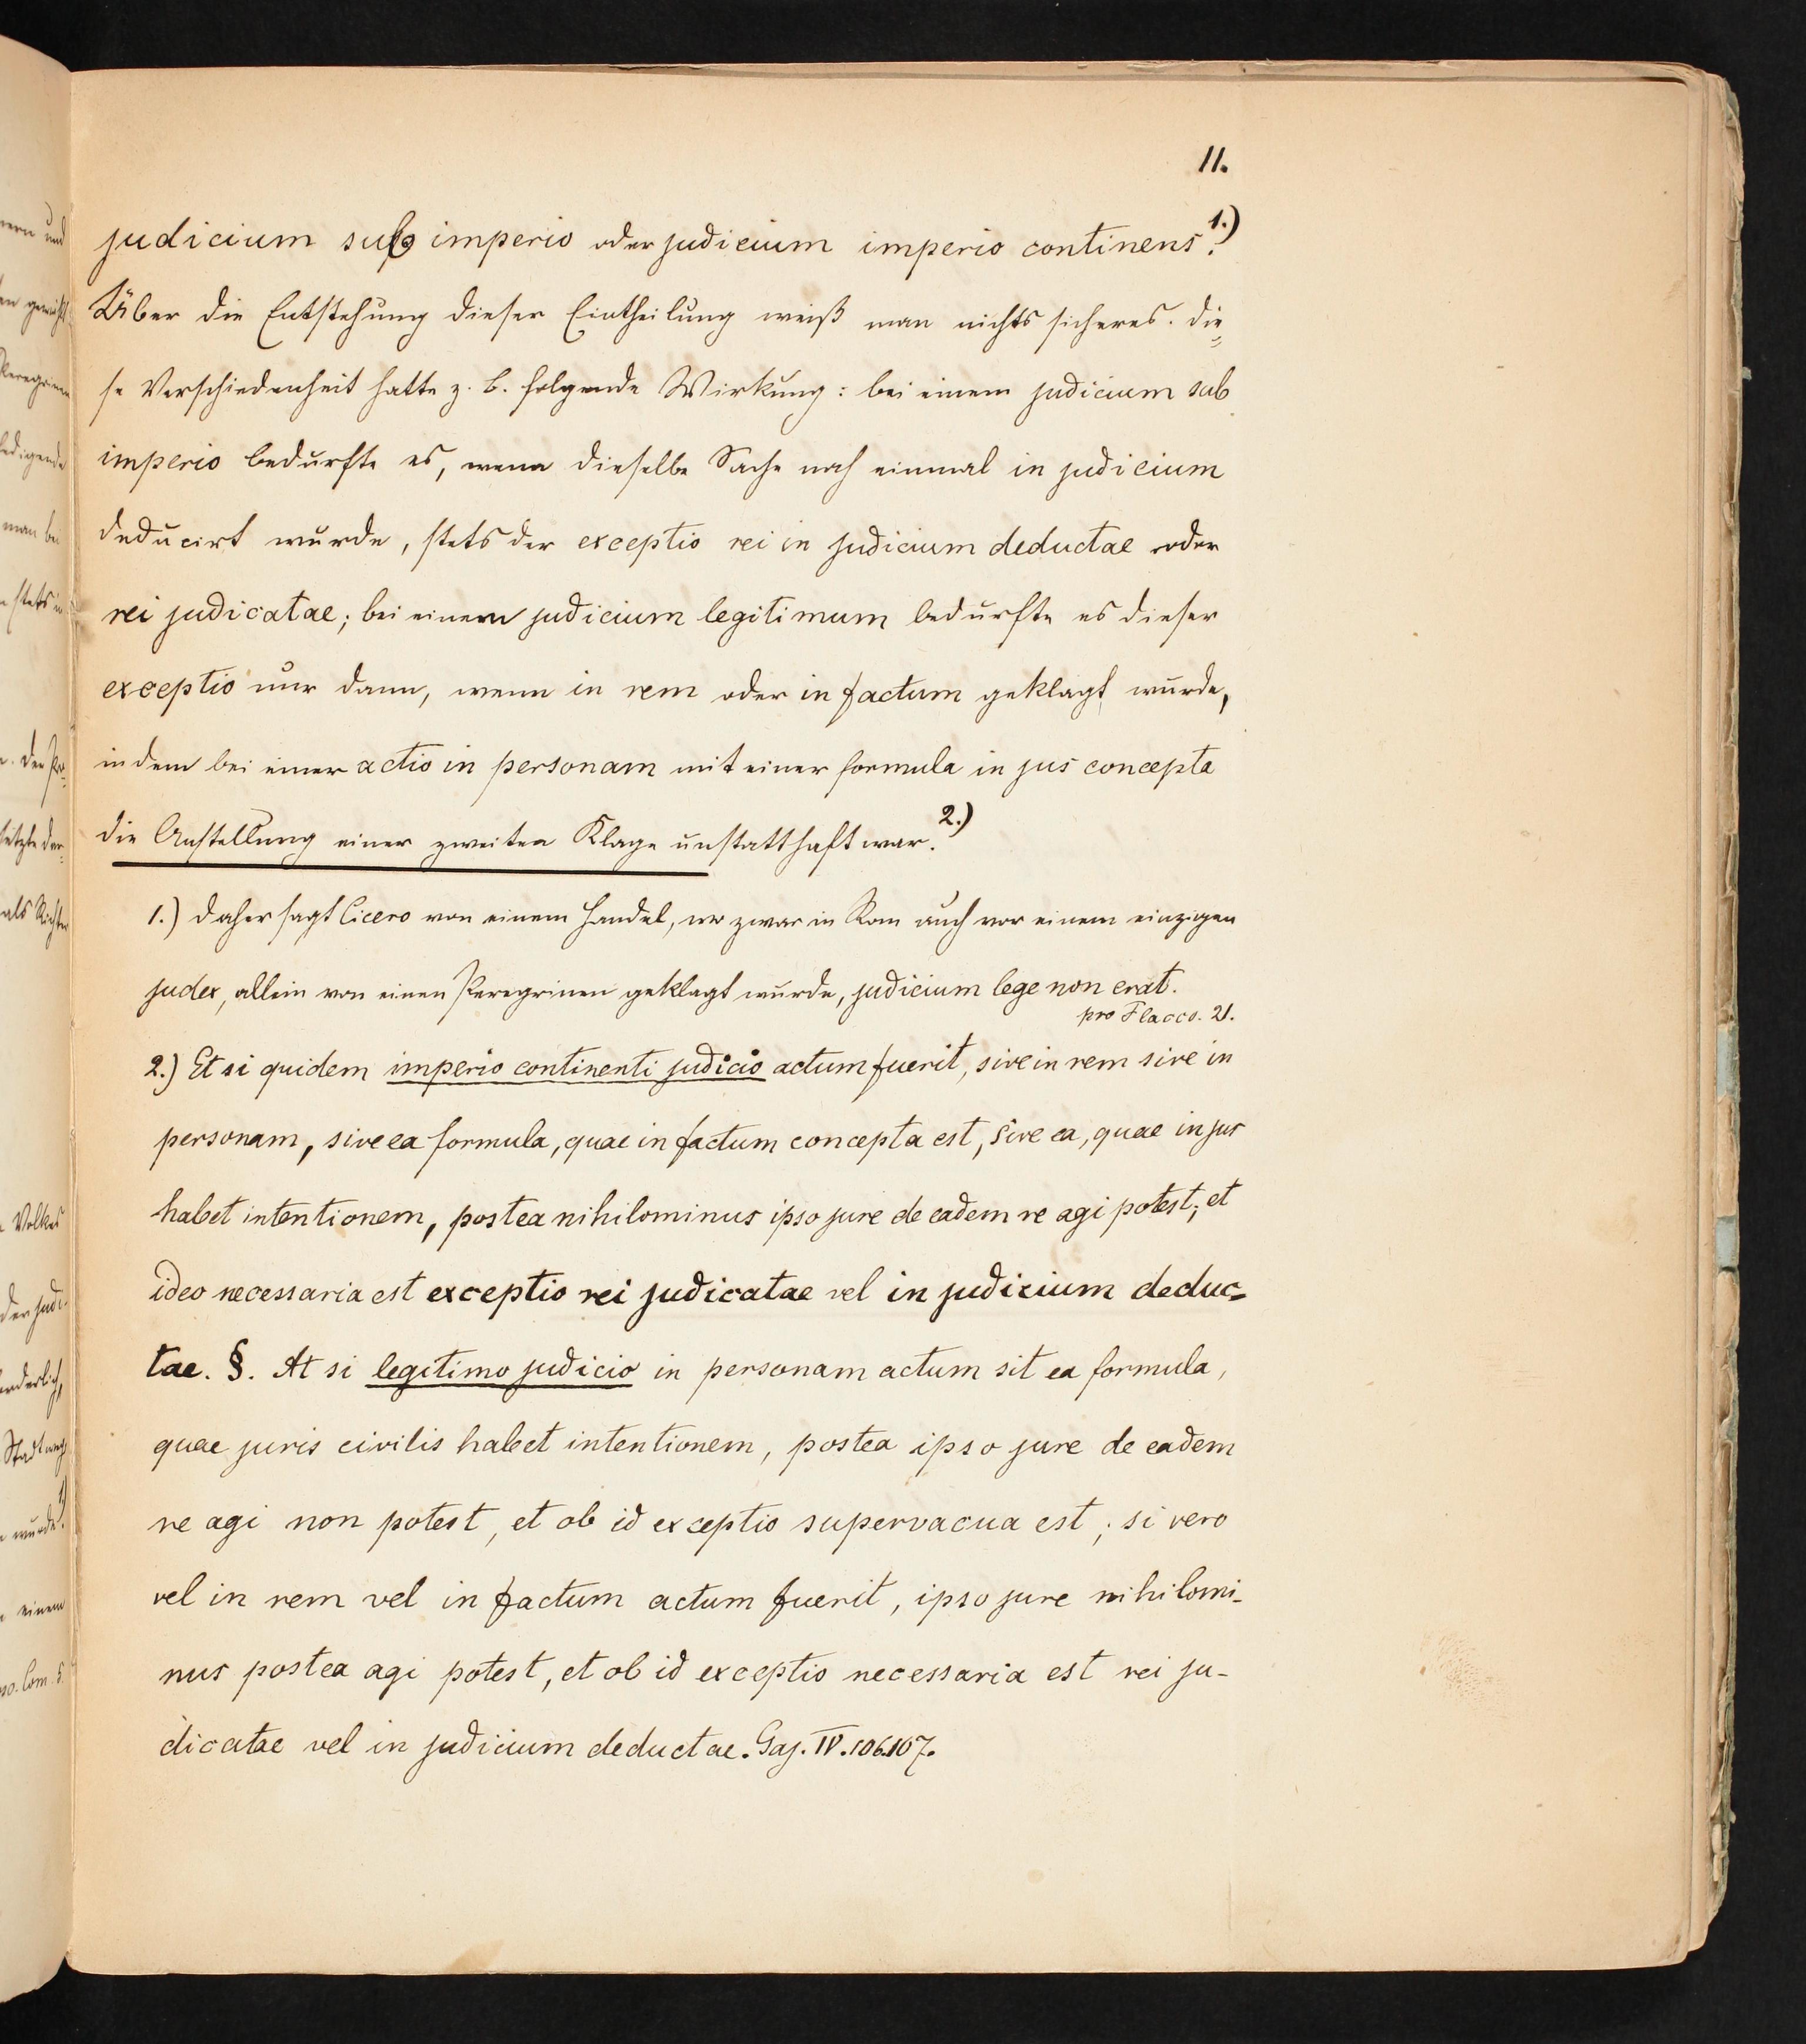 11.
judicium sub imperio oder judicium imperio continens.1.)
Über die Entstehung dieser Eintheilung weiß man nichts sicheres. Die=
se Verschiedenheit hatte z. B. folgende Wirkung: bei einem judicium sub
imperio bedurfte es, wenn dieselbe Sache noch einmal in judicium
deducirt wurde, stets der exceptio rei in judicium deductae oder
rei judicatae; bei einem judicium legitimum bedurfte es dieser
exceptio nur dann, wenn in rem oder in factum geklagt wurde,
indem bei einer actio in personam mit einer formula in jus concepta
die Anstellung einer zweiten Klage unstatthaft war.2.)
1.) Daher sagt Cicero von einem Handel, wo zwar in Rom auch vor einem einzigen
judex, allein von einen Peregrinen geklagt wurde, judicium lege non erat.
pro Flacco. 21.
2.) Et si quidem imperio continenti judicio actum fuerit, sive in rem sive in
personam, sive ea formula, quae in factum concepta est, sive ea, quae in jus
habet intentionem, postea nihilominus ipso jure de eadem re agi potest; et
ideo necessaria est exceptio rei judicatae vel in judicium deduc=
tae. §. At si legitimo judicio in personam actum sit ea formula,
quae juris civilis habet intentionem, postea ipso jure de eadem
re agi non potest, et ob id exceptio supervacua est; si vero
vel in rem vel in factum actum fuerit, ipso jure nihilomi-
nus postea agi potest, et ob id exceptio necessaria est rei ju-
dicatae vel in judicium deductae. Gaj. IV. 106.107.